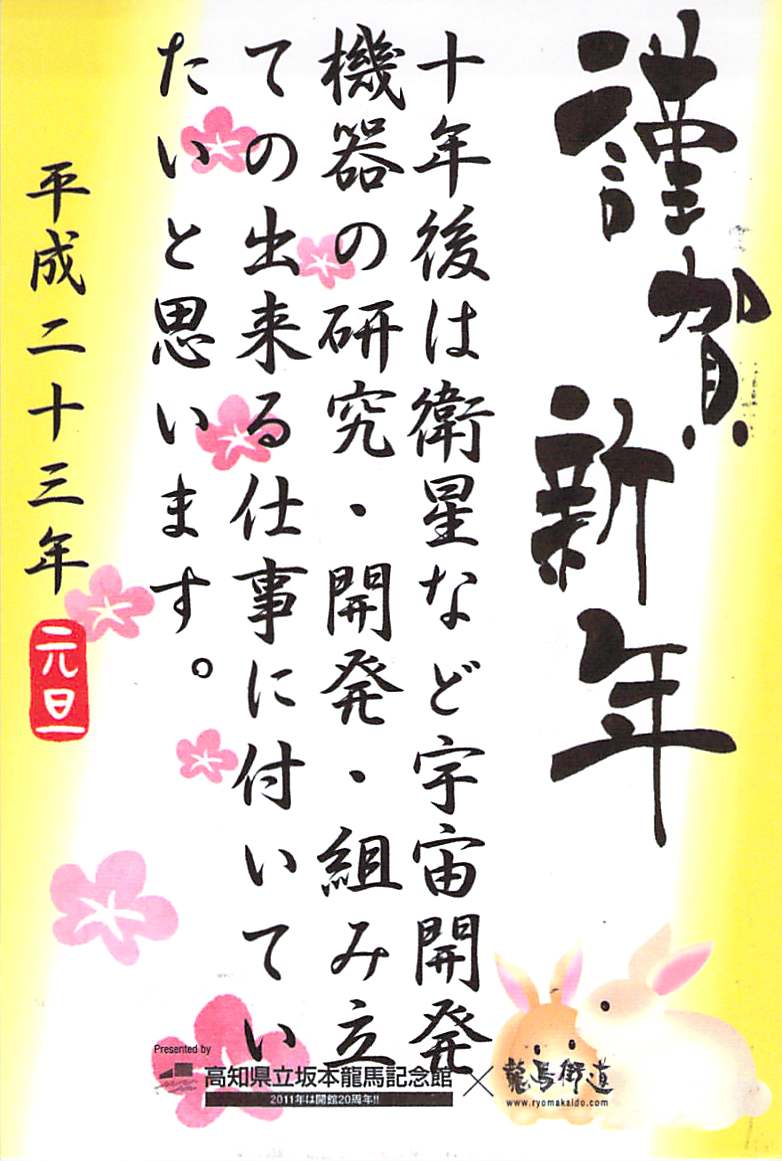 謹賀新年
十年後は衛星など宇宙開発
機器の研究・開発・組み立
ての出来る仕事に付いてい
たいと思います。
平成二十三年
元旦
Presented by
高知県立坂本龍馬記念館×龍馬街道
2011年は開館20周年!!
www.ryomakaido.com